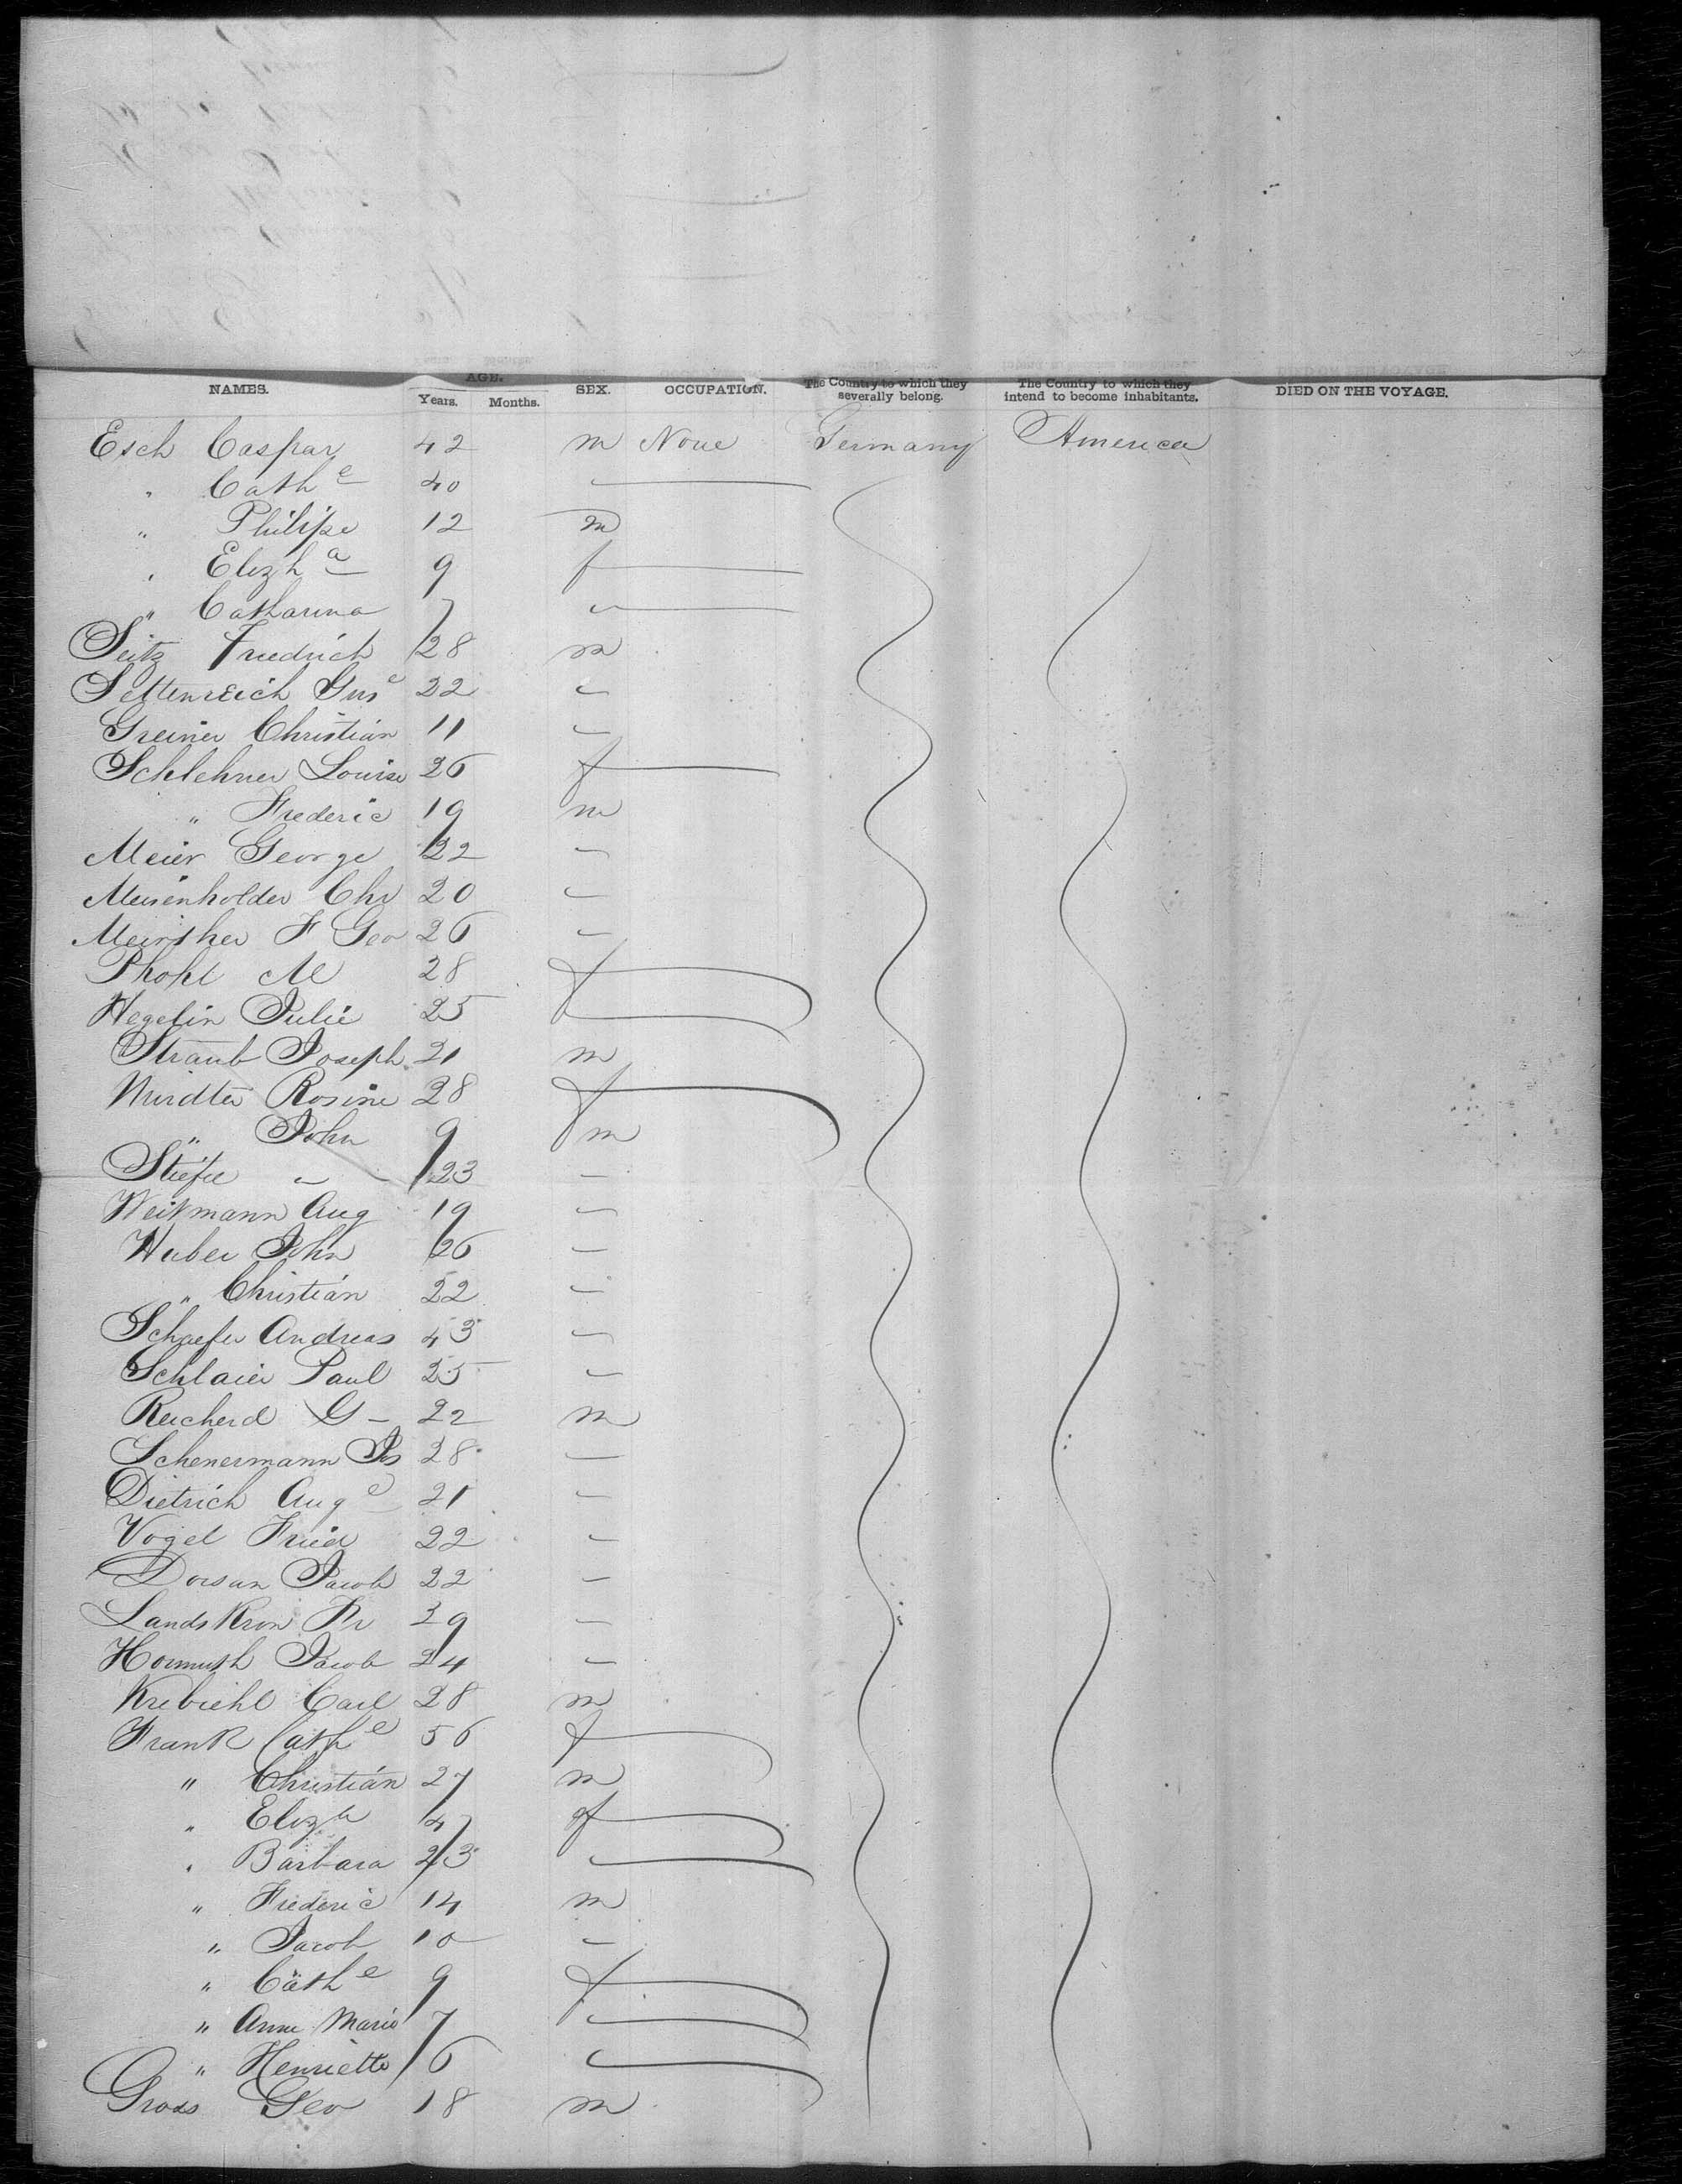 NAMES. AGE. SEX. OCCUPATION. The Country to which they severally belong. The Country to which they intend to become inhabitants. DIED ON THE VOYAGE.
Years. Months.
Esch Caspar 42 m None Germany America
" Cathe 40 "
" Philipe 12 m
" Elizha 9 f
" Catharina 7 "
Seitz Friedrich 28 m
Settenreich Guse 22 "
Greiner Christian 11 "
Schlehner Louise 26 f
" Frederic 19 m
Meier George 22 "
Meisenholder Chr 20 "
Meirther F Geo 26 "
Phohl M 28 f
Hegelin Julie 25 "
Straub Joseph 21 m
Wurdter Rosine 28 f
" John 9 m
Stiefee " 23 "
Weitmann Aug 19 "
Huber John 26 "
" Christian 22 "
Schaefer Andreas 43 "
Schlaier Paul 25 "
Reicherd G - 22 m
Schenermann Js 28 "
Dietrich Auge 21 "
Vogel Fried 22 "
Dorsan Jacob 22 "
Landskron Fr 29 "
Hormuth Jacob 24 "
Krebiehl Carl 28 m
Frank Cathe 56 f
" Christian 27 m
" Elizh 47 f
" Barbara 23 "
" Frederic 14 m
" Jacob 10 "
" Cathe 9 f
" Anne Marie 7 "
" Henriette 6 "
Gross Geo 18 m